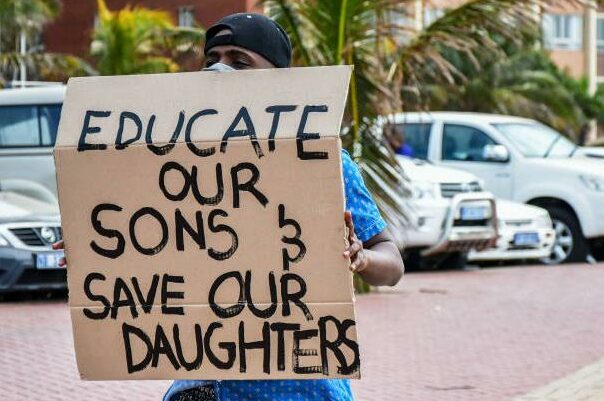 EDUCATE
OUR
SONS &
SAVE OUR
DAUGHTERS